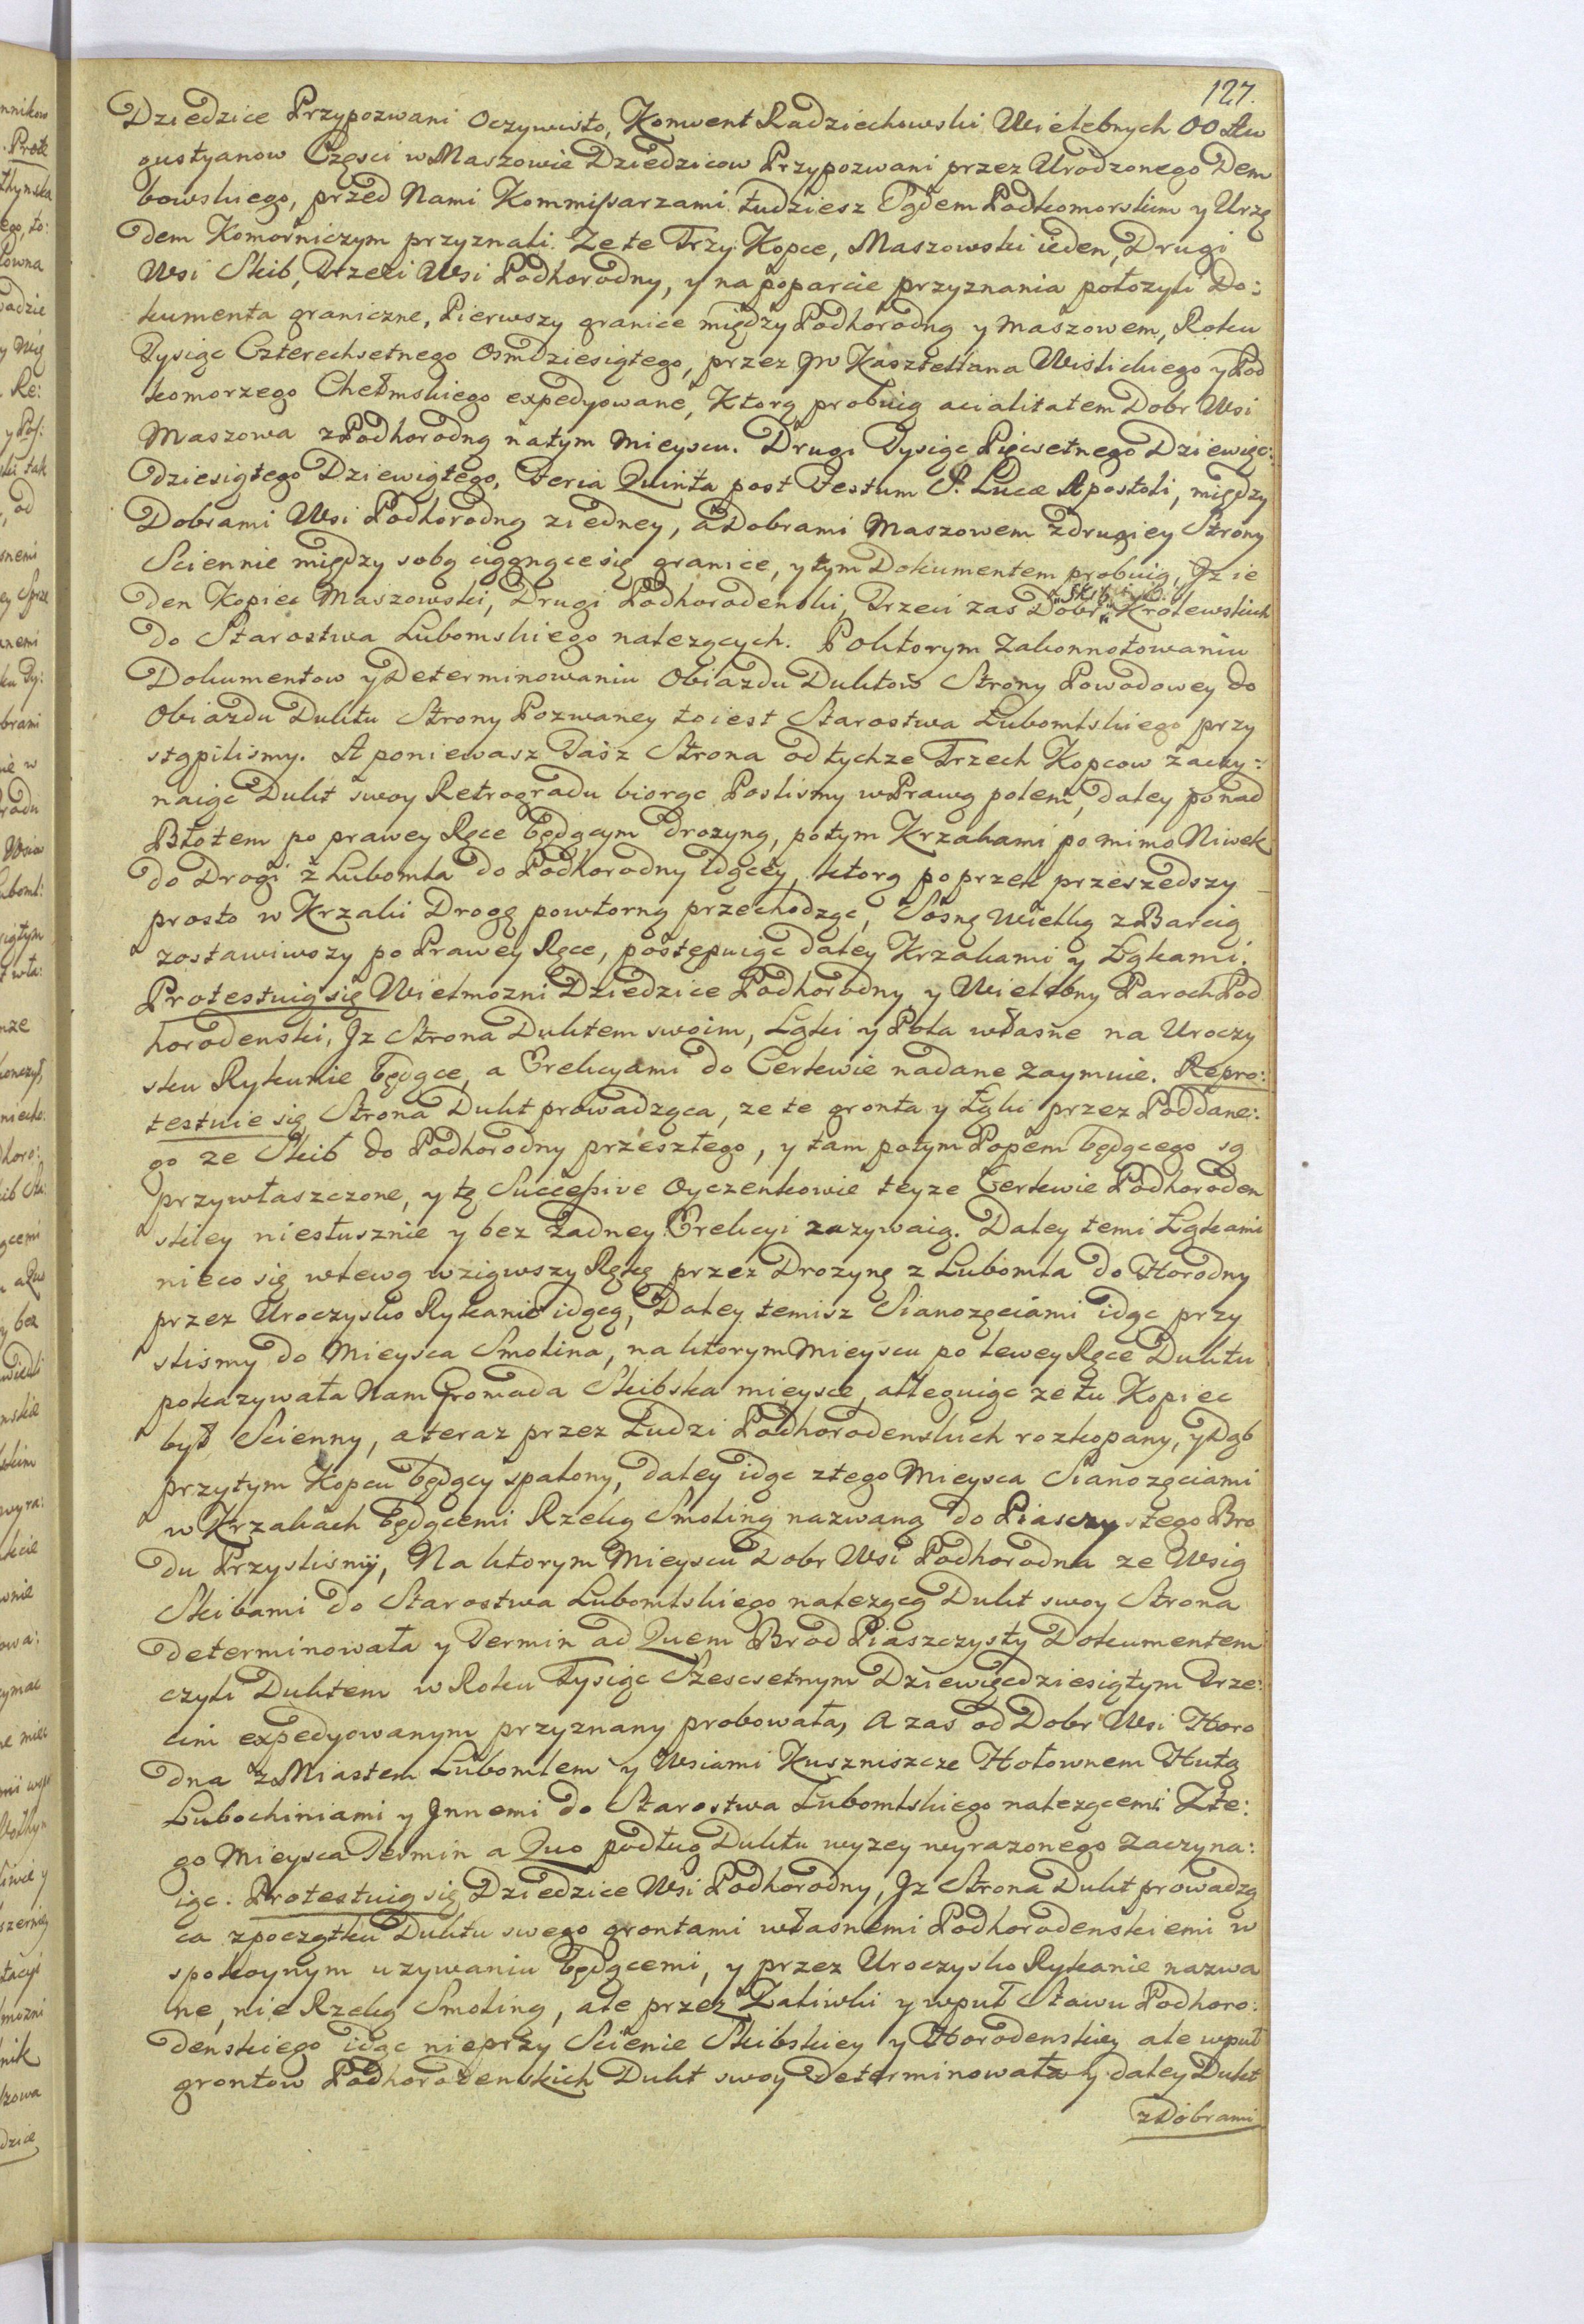 127.
Dziedzice Przypozwani Oczywisto, Konwent Radziechowski Wielebnych OO Au
gustyanow Częsci w Maszowie Dziedzicow Przypozwani przez Urodzonego Dem
bowskiego, przed Nami Kommissarzami tudziesz Sądem Podkomorskim y Urzę
dem Komorniczym przyznali. Ze te Trzy Kopce, Maszowski ieden, Drugi
Wsi Skib, Trzeci Wsi Podhorodny, y na poparcie przyznania połozyli Do:
kumenta graniczne, Pierwszy granice między Podhorodną y Maszowem, Roku
Tysiąc Czterechsetnego Osmdziesiątego, przez JW Kasztellana Wislickiego y Pod
komorzego Chełmskiego expedyowane, Ktorą probuią acialitatem Dobr Wsi
Maszowa z Podhorodną na tym Mieyscu. Drugi Tysiąc Pięcsetnego Dziewięc:
dziesiątego Dziewiątego, Feria Quinta post Festum S. Lucæ Apostoli, między
Dobrami Wsi Podhorodną z iedney, a Dobrami Maszowem z drugiey Strony
Sciennie między sobą ciągnące się granice, y tym Dokumentem probuią, Jz ie
den Kopiec Maszowski, Drugi Podhorodenski, Trzeci zas Dobr Krolewskich
do Starostwa Lubomskiego nalezących. Po ktorym Zakonnotowaniu
Dokumentow y Determinowaniu Obiazdu Duktow Strony Powodowey do
Obiazdu Duktu Strony Pozwaney to iest Starostwa Lubomlskiego przy
stąpilismy. A poniewasz Tasz Strona od tychze Trzech Kopcow zaczy:
naiąc Dukt swoy Retrogradu biorąc Poslismy w Prawą polem, daley ponad
Błotem po prawey Ręce będącym drozyną, potym Krzakami po mimo Niwek
do Drogi z Lubomla do Podhorodny Idącey, ktorą poprzek przeszedszy
prosto w Krzaki Drogę powtorną przechodząc, Sosnę Wielką z Barcią
zostawiwszy po Prawey Ręce, postępuiąc daley Krzakami y Łąkami.
Protestuią się Wielmozni Dziedzice Podhorodny y Wielebny Paroch Pod
horodenski, Jz Strona Duktem swoim, Łąki y Pola własne na Uroczy
sku Rykunie będące, a Erekcyami do Cerkwie nadane zaymuie. Repro:
testuie się Strona Dukt prowadząca, ze te gronta y Łąki przez Poddane:
go ze Skib do Podhorodny przeszłego, y tam potym Popem będącego są
przywłaszczone, y tę Successive Oyczenkowie teyze Cerkwie Podhoroden
skiey niesłusznie y bez zadney Erekcyi zazywaią. Daley temi Łąkami
nieco się w lewą wziąwszy Rękę przez Drozynę z Lubomla do Horodny
przez Uroczysko Rykanie idącą, Daley temisz Sianozęciami idąc przy
slismy do Mieysca Smolina, na ktorym Mieyscu po lewey Ręce Duktu
pokazywała Nam Gromada Skibska mieysce, alleguiąc ze tu Kopiec
był Scienny, a teraz przez Ludzi Podhorodenskich rozkopany, y Dąb
przy tym Kopcu będący spalony, daley idąc z tego Mieysca Sianozęciami
w Krzakach będącemi Rzeką Smoliną nazwaną do Piasczystego Bro
du Przyslismy, Na ktorym Mieyscu Dobr Wsi Podhorodna ze Wsią
Skibami do Starostwa Lubomlskiego nalezącą Dukt swoy Strona
determinowała y Termin ad Quem Brod Piaszczysty Dokumentem
czyli Duktem w Roku Tysiąc Szescsetnym Dziewięcdziesiątym Trze:
cim expedyowanym przyznany probowała, A zas od Dobr Wsi Horo
dna z Miastem Lubomlem y Wsiami Kusznisicze Hołownem Hutą
Lubochiniami y Jnnemi do Starostwa Lubomlskiego nalezącemi Z te:
go Mieysca Termin a Quo podług Duktu wyzey wyrazonego zaczyna:
iąc. Protestuią się Dziedzice Wsi Podhorodny, Jz Strona Dukt prowadzą
ca zpoczątku Duktu swego grontami własnemi Podhorodenskiemi w
spokoynym uzywaniu będącemi, y przez Uroczysko Rykanie nazwa
ne, nie Rzeką Smoliną, ale przez Zaliwki y wpuł Stawu Podhoro:
denskiego idąc nieprzy Scienie Skibskiey y Horodenskiey ale wpuł
grontow Podhorodenskich Dukt swoy determinowała y daley Dukt
z Dobrami